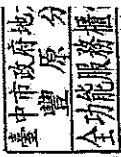 臺中市政府地
豐原分
全功能服務櫃